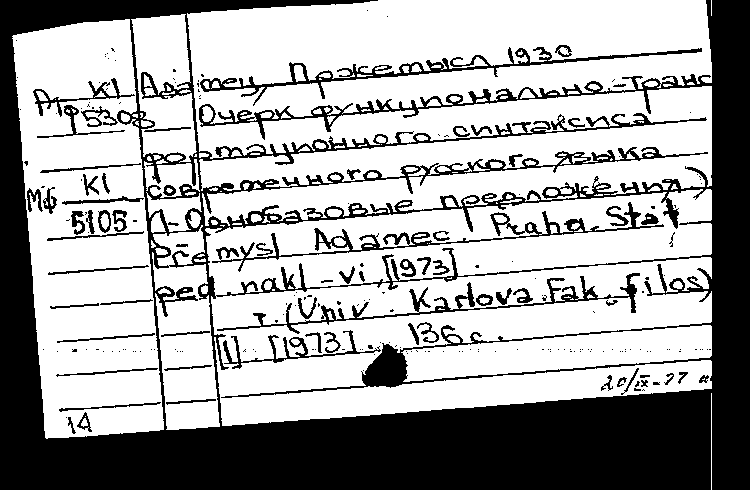 К1 Адамец, Пржемысл, 1930
Ргф 5308 Очерк функционально-транс
формационного синтаксиса
К1 современного русского языка
Мф 5105 (1-Однобазовые предложения)
Přemysl Adamec. Praha. Stát
ped. nakl-vi, [1973].
т. (Univ. Karlova. Fak. filos)
[1]. [1973]. 136 с.
20/IX-77
14